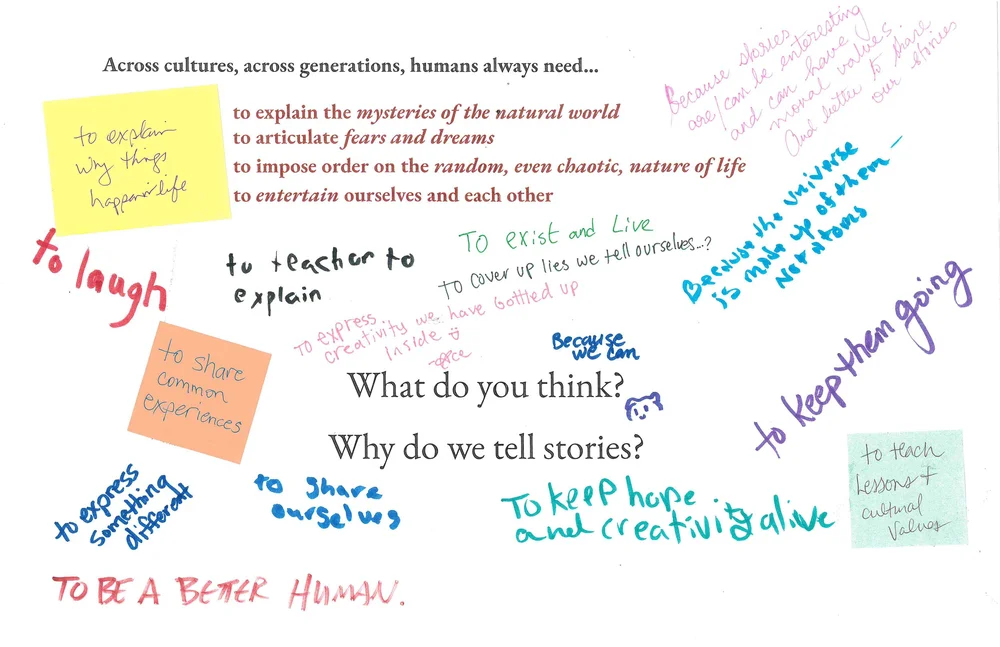 Across cultures, across generations, humans always need...
to explain the mysteries of the natural world
to articulate fears and dreams
to impose order on the random, even chaotic, nature of life
to entertain ourselves and each other
Because stories
are/can be interesting
and can have
moral values
And better to share
our stories
to explain
why things
happen
life
to laugh
to teach or to
explain
To exist and Live
To cover up lies we tell ourselves...?
Because the universe
is made up of them –
Not Atoms
To express
creativity we have bottled up
inside
Because
we can
to keep them going
to share
common
experiences
What do you think?
Why do we tell stories?
to teach
Lessons +
cultural
Values
to express
something
different
to share
ourselves
To keep hope
and creativity alive
TO BE A BETTER HUMAN.